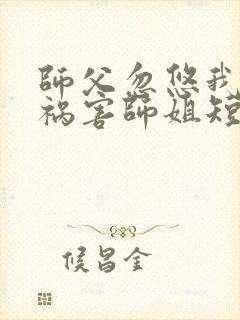 師父忽悠我
祸害師姐短
候昌金